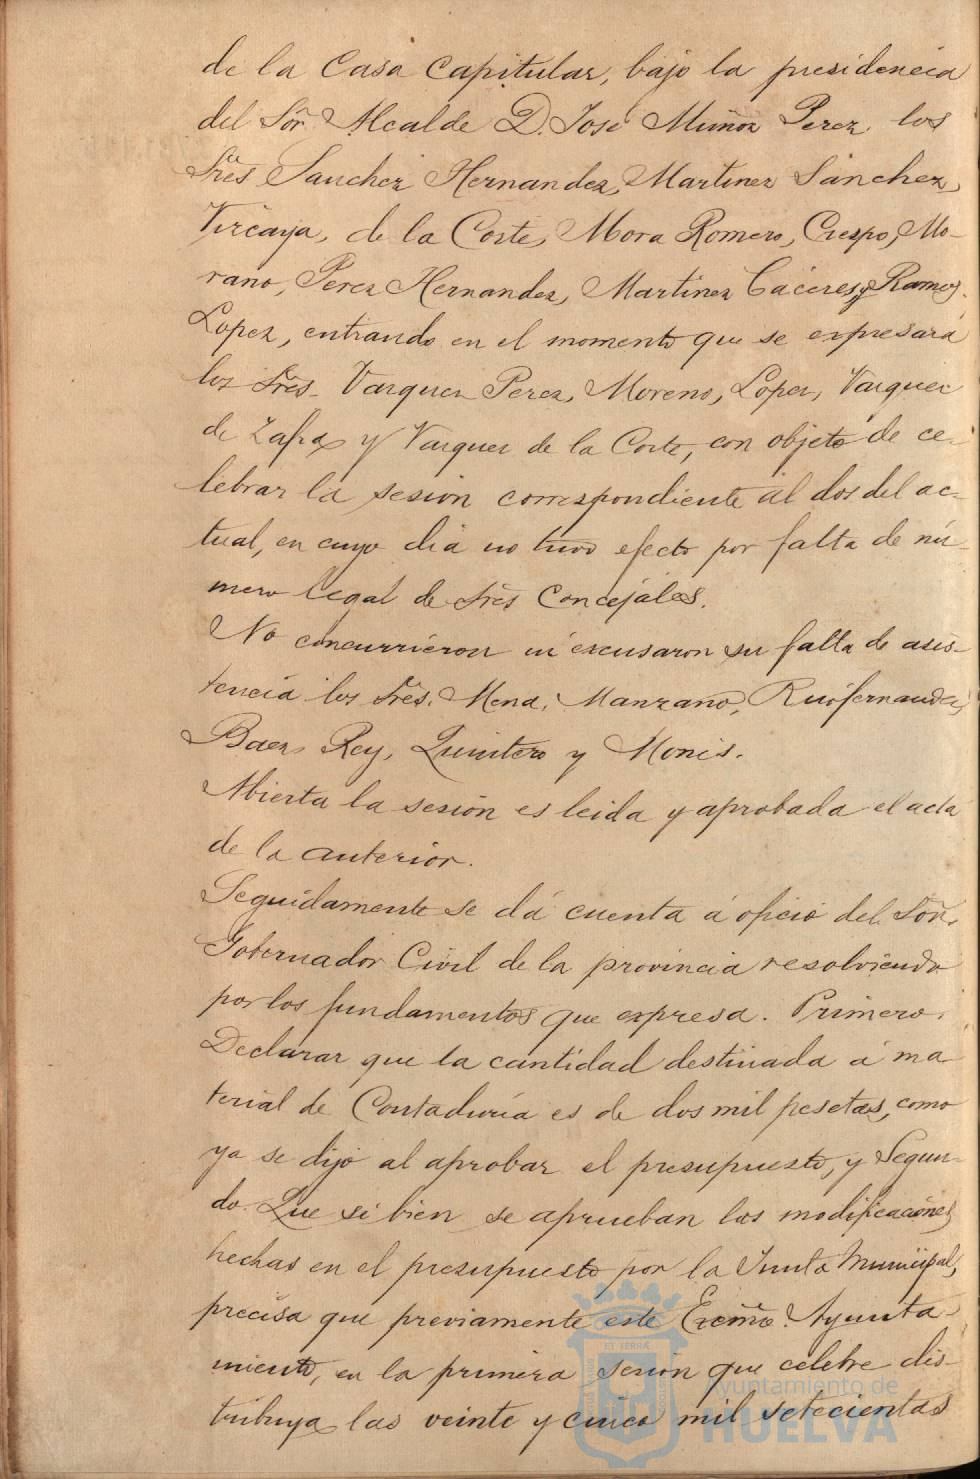 de la Casa Capitular, bajo la presidencia
del Sõr. Alcalde D. José Muñoz Perez, los
Srẽs Sanchez Hernandez, Martinez Sanchez,
Vizcaya, de la Corte, Mora Romero, Crespo, Mo-
rano, Perez Hernandez, Martinez Cáceres, y Ramos
Lopez, entrando en el momento que se expresará
los Srẽs. Vazquez Perez, Moreno, Lopez, Vazquez
de Zafra y Vazquez de la Corte, con objeto de ce-
lebrar la sesion correspondiente al dos del ac-
tual, en cuyo dia no tuvo efecto por falta de nú-
mero legal de Srẽs Concejáles.
No concurrieron ni excusaron su falta de asis-
tencia los Srẽs. Mena, Manzano, Ruifernandez,
Baez, Rey, Quintero y Monis.
Abierta la sesion es leida y aprobada el acta
de la anterior.
Seguidamente se dá cuenta á oficio del Sõr.
Gobernador Civil de la provincia resolviendo
por los fundamentos que expresa. Primero.
Declarar que la cantidad destinada á ma
terial de Contaduría es de dos mil pesetas, como
ya se dijo al aprobar el presupuesto, y Segun-
do. Que si bien se aprueban las modificaciones
hechas en el presupuesto por la Junta Municipal,
precisa que previamente este Excmõ. Ayunta-
miento, en la primera sesion que celebre dis-
tribuya las veinte y cinco mil setecientas
Ayuntamiento de
HUELVA